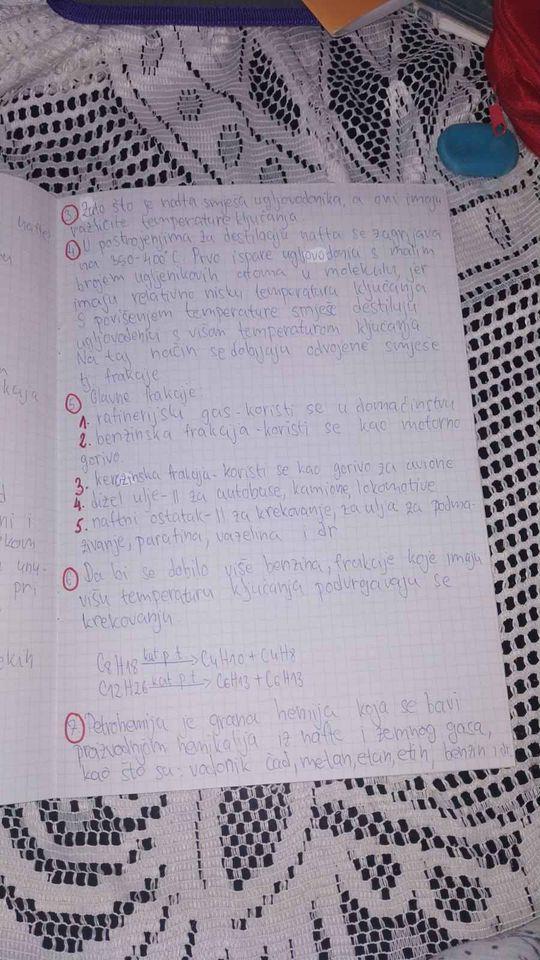 3) Zato što je nafta smjesa ugljovodonika, a oni imaju
različite temperature ključanja.
4) U postrojenjima za destilaciju nafta se zagrijava
na 350-400°C. Prvo ispare ugljovodonici s malim
brojem ugljenikovih atoma u molekulu, jer
imaju relativno nisku temperaturu ključanja
S povišenjem temperature smješe destiluju
ugljovodonici s višom temperaturom ključanja
Na taj način se dobijaju odvojene smjese
tj. frakcije
5) Glavne frakcije:
1. rafinerijski gas - koristi se u domaćinstvu
2. benzinska frakcija - koristi se kao motorno
gorivo.
3. kerozinska frakcija - koristi se kao gorivo za avione
4. dizel ulje - II za autobuse, kamione, lokomotive
5. naftni ostatak - II za krekovanje, za ulja za podma-
zivanje, parafina, vazelina i dr
6) Da bi se dobilo više benzina, frakcije koje imaju
višu temperaturu ključanja podvrgavaju se
krekovanju
C8H18 kat p t → C4H10 + C4H8
C12H26 kat p t → C6H13 + C6H13
7) Petrohemija je grana hemija koja se bavi
proizvodnjom hemikalija iz nafte i zemnog gasa,
kao što su: vodonik čađ, metan, etan, etin, benzin i dr
nafte
kcija
ni i
kom
unu-
pri
ekih